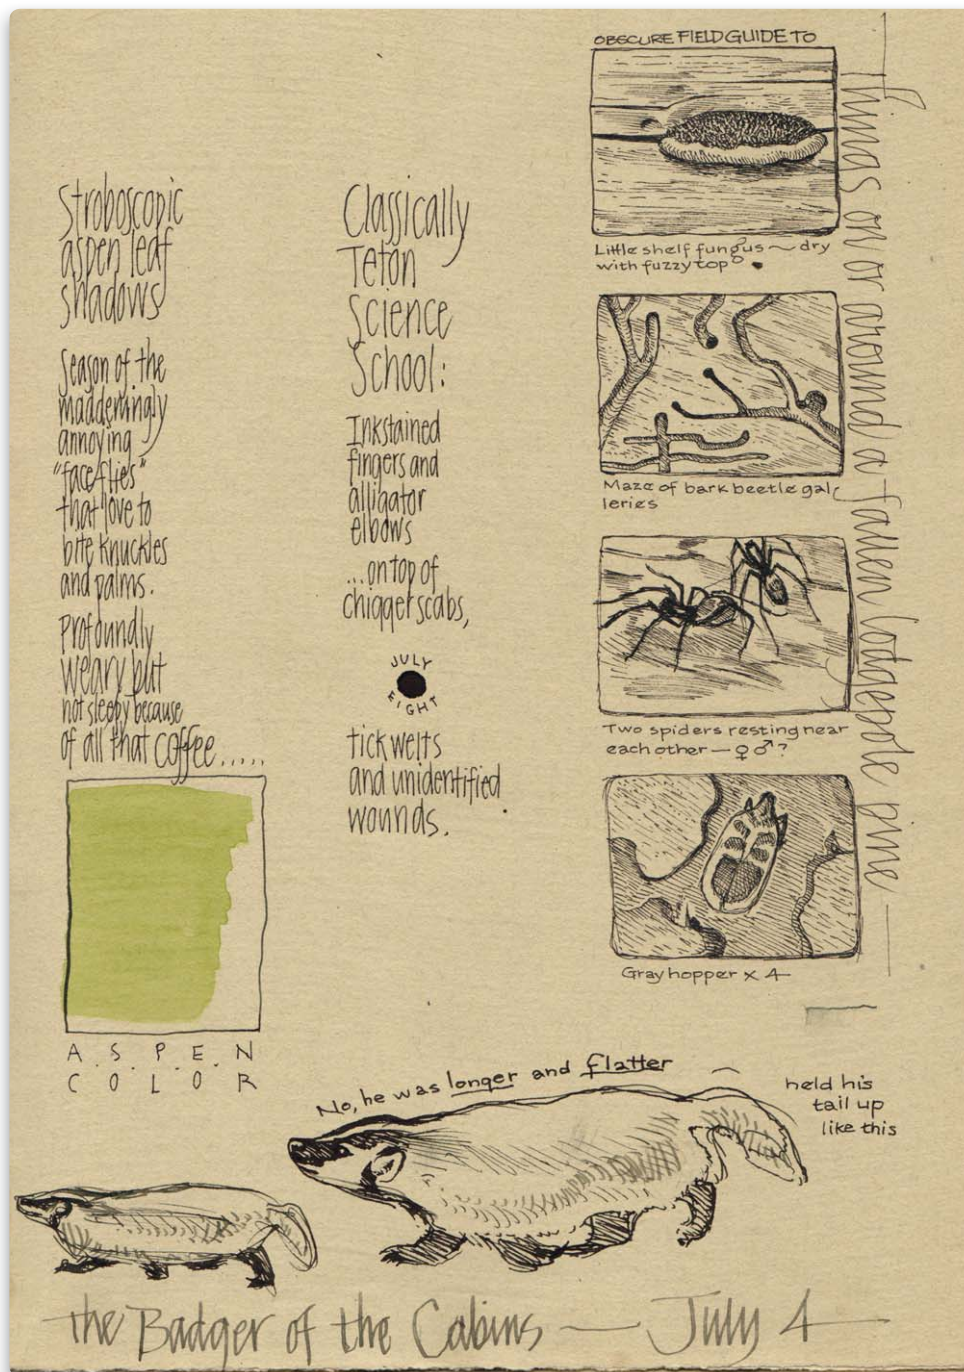 Stroboscopic
aspen leaf
shadows
Season of the
maddeningly
annoying
"face flies"
that love to
bite knuckles
and palms.
Profoundly
weary but
not sleepy because
of all that coffee.....
A.S.P.E.N
C O L O R
Classically
Teton
Science
School:
Inkstained
fingers and
alligator
elbows
...on top of
chigger scabs,
JULY
EIGHT
tick welts
and unidentified
wounds.
OBSCURE FIELD GUIDE TO
Things on or around a fallen lodgepole pine
Little shelf fungus ~ dry
with fuzzy top
Maze of bark beetle gal
leries
Two spiders resting near
each other — ♀ ♂ ?
Gray hopper x 4
No, he was longer and flatter
held his
tail up
like this
the Badger of the Cabins — July 4